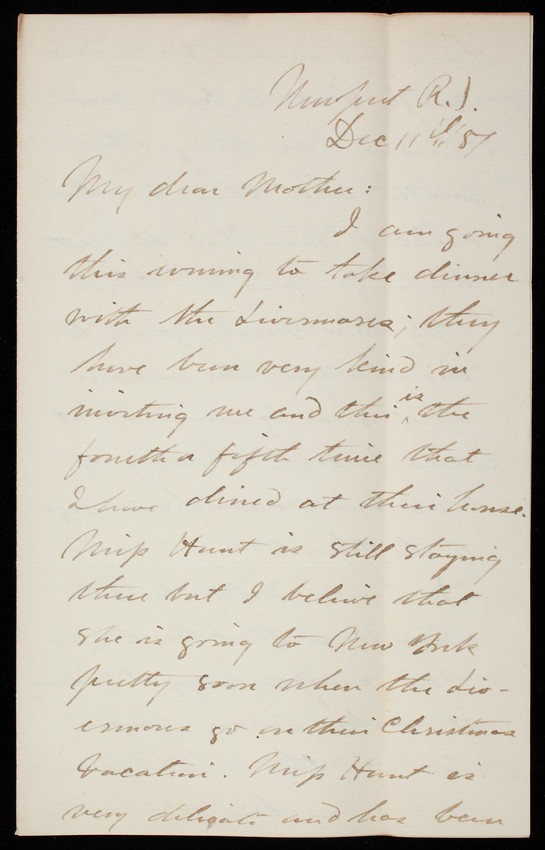 Newport R.I.
Dec 11th 87
My dear Mother:
I am going
this evening to take dinner
with the Livermores; they
have been very kind in
inviting me and this is the
fourth or fifth time that
I have dined at their house.
Miss Hunt is still staying
there but I believe that
she is going to New York
pretty soon when the Liv-
ermores go on their Christmas
vacation. Miss Hunt is
very delicate and has been